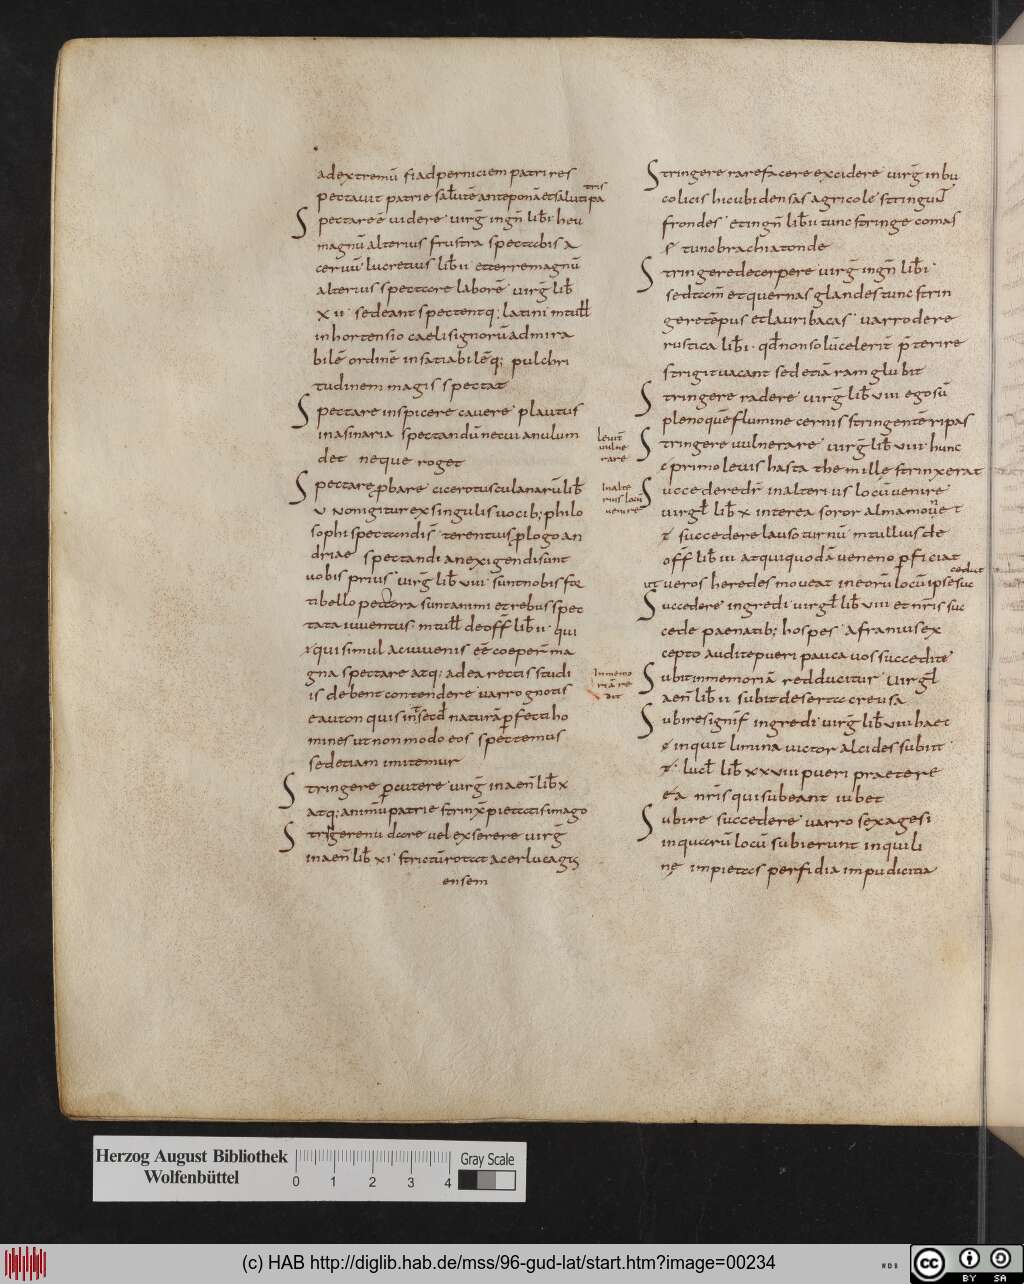 ad extremū si ad perniciem patrires
pectauit patrie salutē anteponā et saluti pa
tris
Spectare ē uidere uirḡ ingn̄ lib̄ i heu
magnū alterius frustra spectabis a
ceruū lucretius lib̄ ii et terre magnū
alterius spectare laborē uirḡ lib̄
xii sedeant spectentq; latini m tull
in hortensio caeli signorū admira
bilē ordinē insatiabilēq; pulchri
tudinem magis spectat
Spectare inspicere cauere plautus
in asinaria spectandū ne cui anulum
det neque roget
Spectare ꝓbare cicero tusculanarū lib̄
v non igitur ex singulis uocib; philo
sophi spectandi s̄ terentius ꝓlogo an
driae spectandi an exigendi sunt
uobis prius uirḡ lib̄ viii sunt nobis for
ti bello pectora sunt animi et rebus spec
tata iuuentus m tull de off lib̄ ii qui
simul ac iuuenis
gna spectare atq; ad ea rectis studi
is debent contendere uarro gnotis
eauton qui sectd naturā perfecti ho
mines ut non modo eos spectemus
sed etiam imitemur
Stringere percutere uirḡ in aen̄ lib̄ x
atq; animū patrie strinxt pietatis imago
Stringere nudare uel exserere uirḡ
in aen̄ lib̄ xi strictū rotat acer lucagus
ensem
Stringere rarefacere excidere uirḡ in bu
colicis hic ubi densas agricole stringunt
frondes et in gn̄ lib̄ ii tunc stringe comas
tunc brachia tonde
Stringere decerpere uirḡ in gn̄ lib̄ i
sed tam et quernas glandes tunc strin
gere tēpus et lauri bacas uarro de re
rustica lib̄ i qd non solū celerit p̄terire
strigit uacant sed etiā ram glubit
Stringere radere uirḡ lib̄ viii ego sū
pleno quē flumine cernis stringentē ripas
leuit̄
uulne
rare
Stringere uulnerare uirḡ lib̄ viiii hunc
primo leuis hasta themille strinxerat
in alte
rius locū
uenire
Succedere dr̄ in alterius locū uenire
uirgl lib̄ x interea soror alma mouet
succedere lauso turnū m tullius de
off lib̄ iii atqui quodā ueneno ꝑficiat
ut ueros heredes moueat in eorū locū ipse suc
cedat
Succedere ingredi uirgl lib̄ viii et nr̄is suc
cede paenatib; hospes afranius ex
cepto audite pueri pauca uos succedite
in memo
riā re
dit
Subit in memoriā redducitur uirgl
aen̄ lib̄ ii subit deserta creusa
Subire signif ingredi uirḡ lib̄ viii haec
inquit limina uictor alcides subiit
lucl lib̄ xxviii pueri praetere
ea nr̄is qui subeant iubet
Subire succedere uarro sexagesi
in quarū locū subierunt inquili
nę impietas perfidia impudicitia
Herzog August Bibliothek
Wolfenbüttel
0 1 2 3 4
Gray Scale
(c) HAB http://diglib.hab.de/mss/96-gud-lat/start.htm?image=00234
WDB
cc BY SA